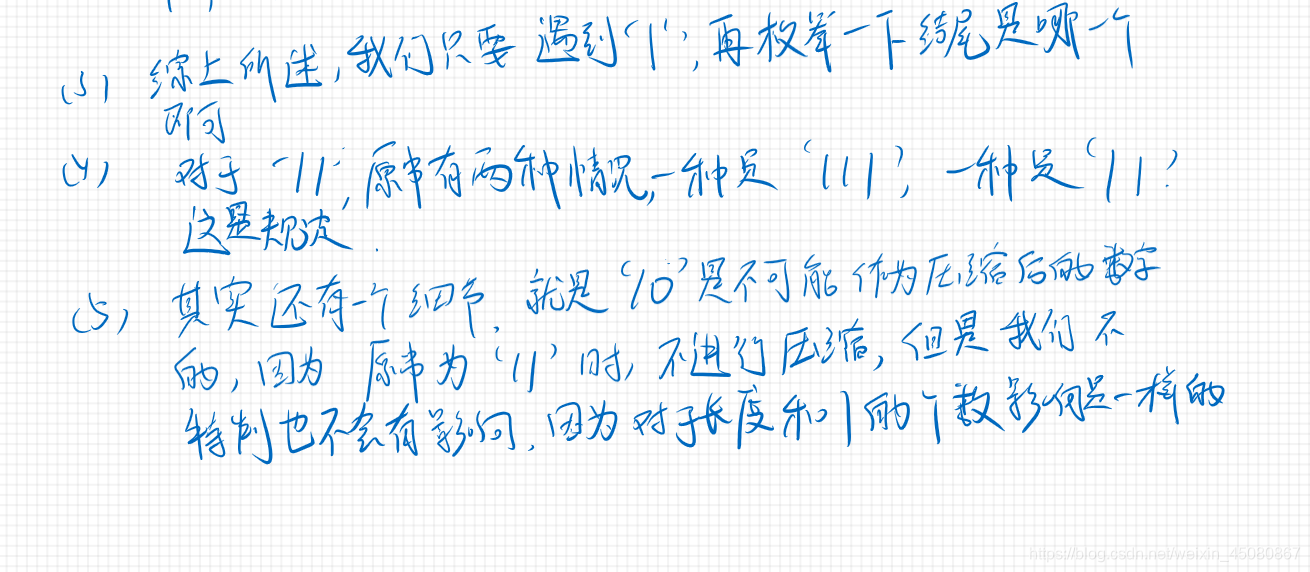 (3) 综上所述,我们只要遇到'1',再枚举一下结尾是哪一个
即可
(4) 对于'11',原串有两种情况,一种是'111',一种是'11'
这是规定.
(5) 其实还有一个细节,就是'10'是不可能作为压缩后的数字
的,因为原串为'11'时,不进行压缩,但是我们不
特判也不会有影响,因为对于长度和1的个数影响是一样的
https://blog.csdn.net/weixin_45080867